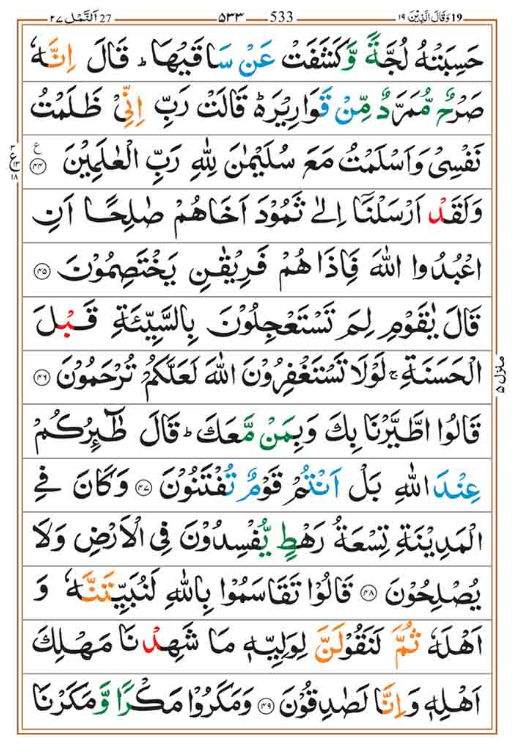 19 وَقَالَ الَّذِيْنَ ١٩ ٥٣٣ 533 27 اَلنَّمْل ٢٧
حَسِبَتْهُ لُجَّةً وَّكَشَفَتْ عَنْ سَاقَيْهَا ؕ قَالَ اِنَّهٗ
صَرْحٌ مُّمَرَّدٌ مِّنْ قَوَارِيْرَ ؕ۬ قَالَتْ رَبِّ اِنِّىْ ظَلَمْتُ
نَفْسِىْ وَاَسْلَمْتُ مَعَ سُلَيْمٰنَ لِلّٰهِ رَبِّ الْعٰلَمِيْنَ ﴿٤٤﴾ ع
وَلَقَدْ اَرْسَلْنَاۤ اِلٰى ثَمُوْدَ اَخَاهُمْ صٰلِحًا اَنِ
اعْبُدُوا اللّٰهَ فَاِذَا هُمْ فَرِيْقٰنِ يَخْتَصِمُوْنَ ﴿٤٥﴾
قَالَ يٰقَوْمِ لِمَ تَسْتَعْجِلُوْنَ بِالسَّيِّئَةِ قَبْلَ
الْحَسَنَةِ ۚ لَوْلَا تَسْتَغْفِرُوْنَ اللّٰهَ لَعَلَّكُمْ تُرْحَمُوْنَ ﴿٤٦﴾
منزل ٥
قَالُوا اطَّيَّرْنَا بِكَ وَبِمَنْ مَّعَكَ ؕ قَالَ طٰٓئِرُكُمْ
عِنْدَ اللّٰهِ بَلْ اَنْتُمْ قَوْمٌ تُفْتَنُوْنَ ﴿٤٧﴾ وَكَانَ فِى
الْمَدِيْنَةِ تِسْعَةُ رَهْطٍ يُّفْسِدُوْنَ فِى الْاَرْضِ وَلَا
يُصْلِحُوْنَ ﴿٤٨﴾ قَالُوْا تَقَاسَمُوْا بِاللّٰهِ لَنُبَيِّتَنَّهٗ وَ
اَهْلَهٗ ثُمَّ لَنَقُوْلَنَّ لِوَلِيِّهٖ مَا شَهِدْنَا مَهْلِكَ
اَهْلِهٖ وَاِنَّا لَصٰدِقُوْنَ ﴿٤٩﴾ وَمَكَرُوْا مَكْرًا وَّمَكَرْنَا